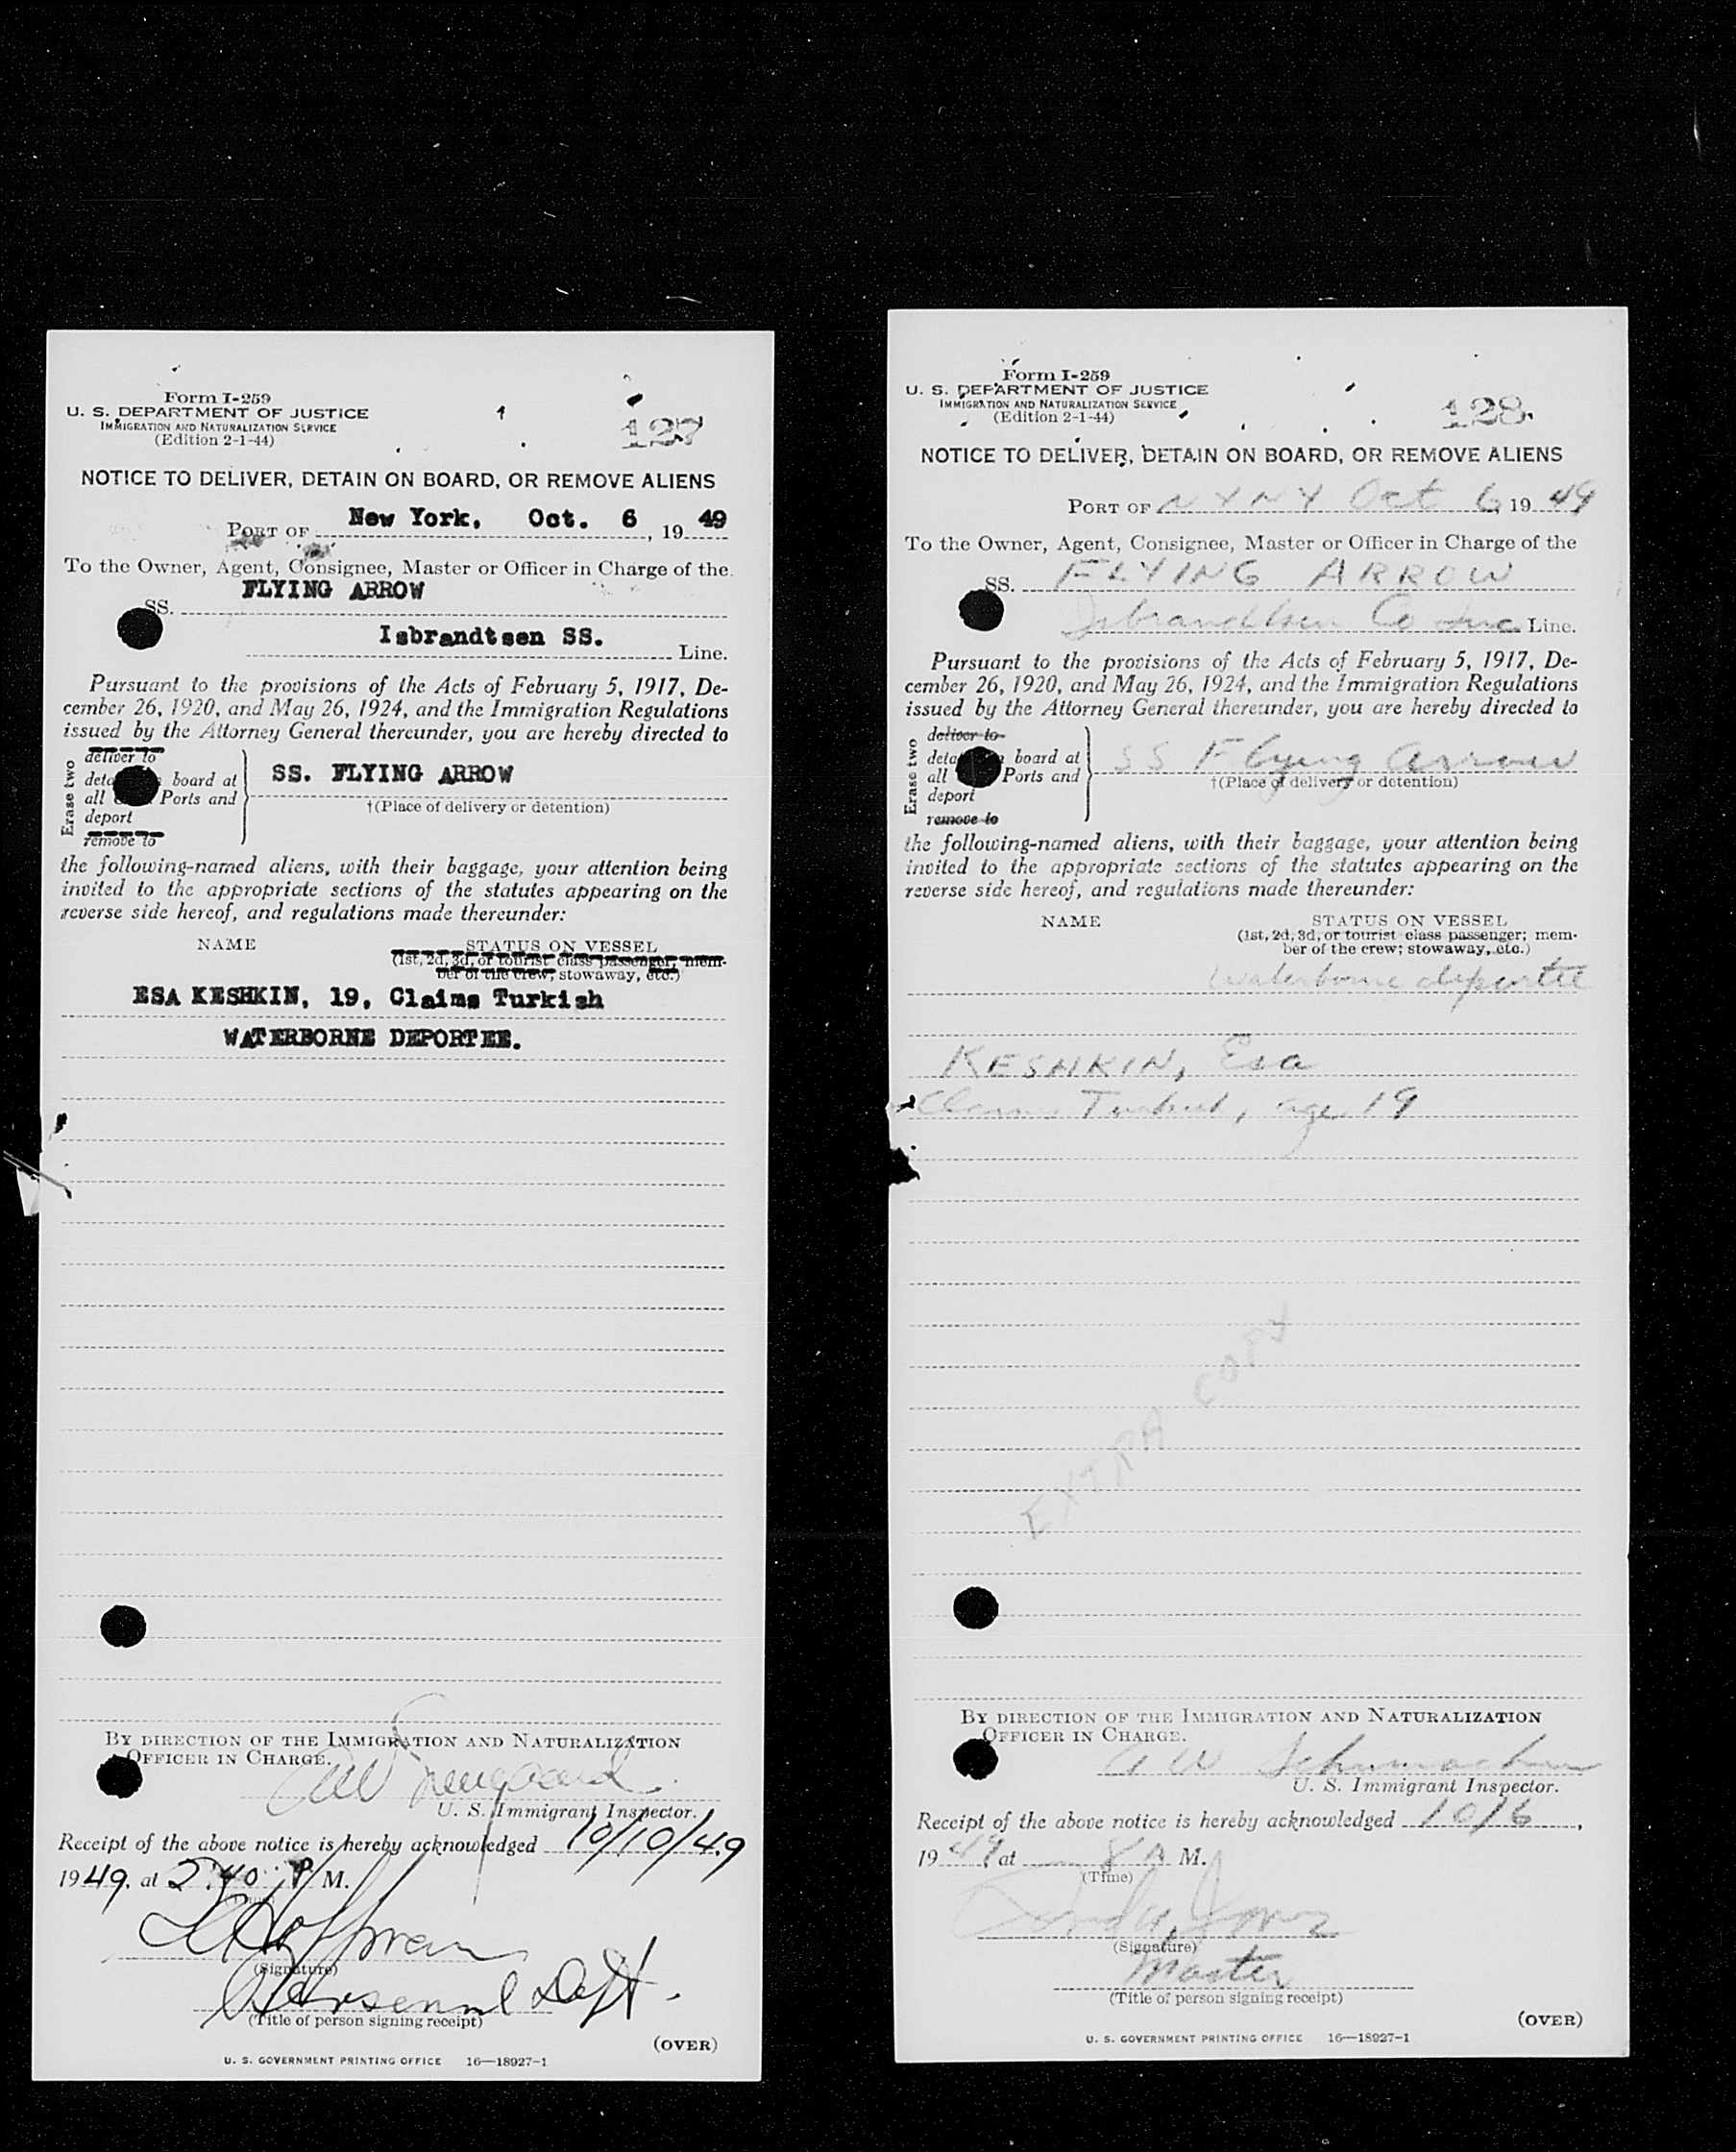 Form I-259
U. S. DEPARTMENT OF JUSTICE
IMMIGRATION AND NATURALIZATION SERVICE
(Edition 2-1-44)
127
NOTICE TO DELIVER, DETAIN ON BOARD, OR REMOVE ALIENS
PORT OF New York, Oct. 6, 19 49
To the Owner, Agent, Consignee, Master or Officer in Charge of the
SS. FLYING ARROW
Isbrandtsen SS. Line.
Pursuant to the provisions of the Acts of February 5, 1917, De-
cember 26, 1920, and May 26, 1924, and the Immigration Regulations
issued by the Attorney General thereunder, you are hereby directed to
Erase two
deliver to
board at
all Ports and
deport
remove to
SS. FLYING ARROW
†(Place of delivery or detention)
the following-named aliens, with their baggage, your attention being
invited to the appropriate sections of the statutes appearing on the
reverse side hereof, and regulations made thereunder:
NAME STATUS ON VESSEL
(1st, 2d, 3d, or tourist class passenger; mem-
ber of the crew; stowaway, etc.)
ESA KESHKIN, 19, Claims Turkish
WATERBORNE DEPORTEE.
BY DIRECTION OF THE IMMIGRATION AND NATURALIZATION
OFFICER IN CHARGE.
U. S. Immigrant Inspector.
Receipt of the above notice is hereby acknowledged 10/10/49
1949, at 2:40 P M.
Hoffman
(Signature)
Personnel Dept.
(Title of person signing receipt)
(OVER)
U. S. GOVERNMENT PRINTING OFFICE 16—18927-1
Form I-259
U. S. DEPARTMENT OF JUSTICE
IMMIGRATION AND NATURALIZATION SERVICE
(Edition 2-1-44)
128
NOTICE TO DELIVER, DETAIN ON BOARD, OR REMOVE ALIENS
PORT OF NY NY Oct 6, 19 49
To the Owner, Agent, Consignee, Master or Officer in Charge of the
SS. FLYING ARROW
Isbrandtsen Co Inc Line.
Pursuant to the provisions of the Acts of February 5, 1917, De-
cember 26, 1920, and May 26, 1924, and the Immigration Regulations
issued by the Attorney General thereunder, you are hereby directed to
Erase two
deliver to
board at
all Ports and
deport
remove to
SS Flying Arrow
†(Place of delivery or detention)
the following-named aliens, with their baggage, your attention being
invited to the appropriate sections of the statutes appearing on the
reverse side hereof, and regulations made thereunder:
NAME STATUS ON VESSEL
(1st, 2d, 3d, or tourist class passenger; mem-
ber of the crew; stowaway, etc.)
Waterborne deportee
KESHKIN, Esa
Claims Turkish, age 19
EXTRA COPY
BY DIRECTION OF THE IMMIGRATION AND NATURALIZATION
OFFICER IN CHARGE.
A W Schumacher
U. S. Immigrant Inspector.
Receipt of the above notice is hereby acknowledged 10/6,
19 49 at 8 A M.
(Time)
(Signature)
Master
(Title of person signing receipt)
(OVER)
U. S. GOVERNMENT PRINTING OFFICE 16—18927-1